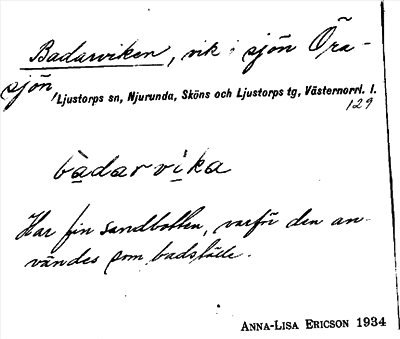 Badarviken, vik i sjön Öra-
sjön, Ljustorps sn, Njurunda, Sköns och Ljustorps tg, Västernorrl. l.
129
bàdarvi̱ka
Har fin sandbotten, varför den an-
vändes som badställe.
ANNA-LISA ERICSON 1934